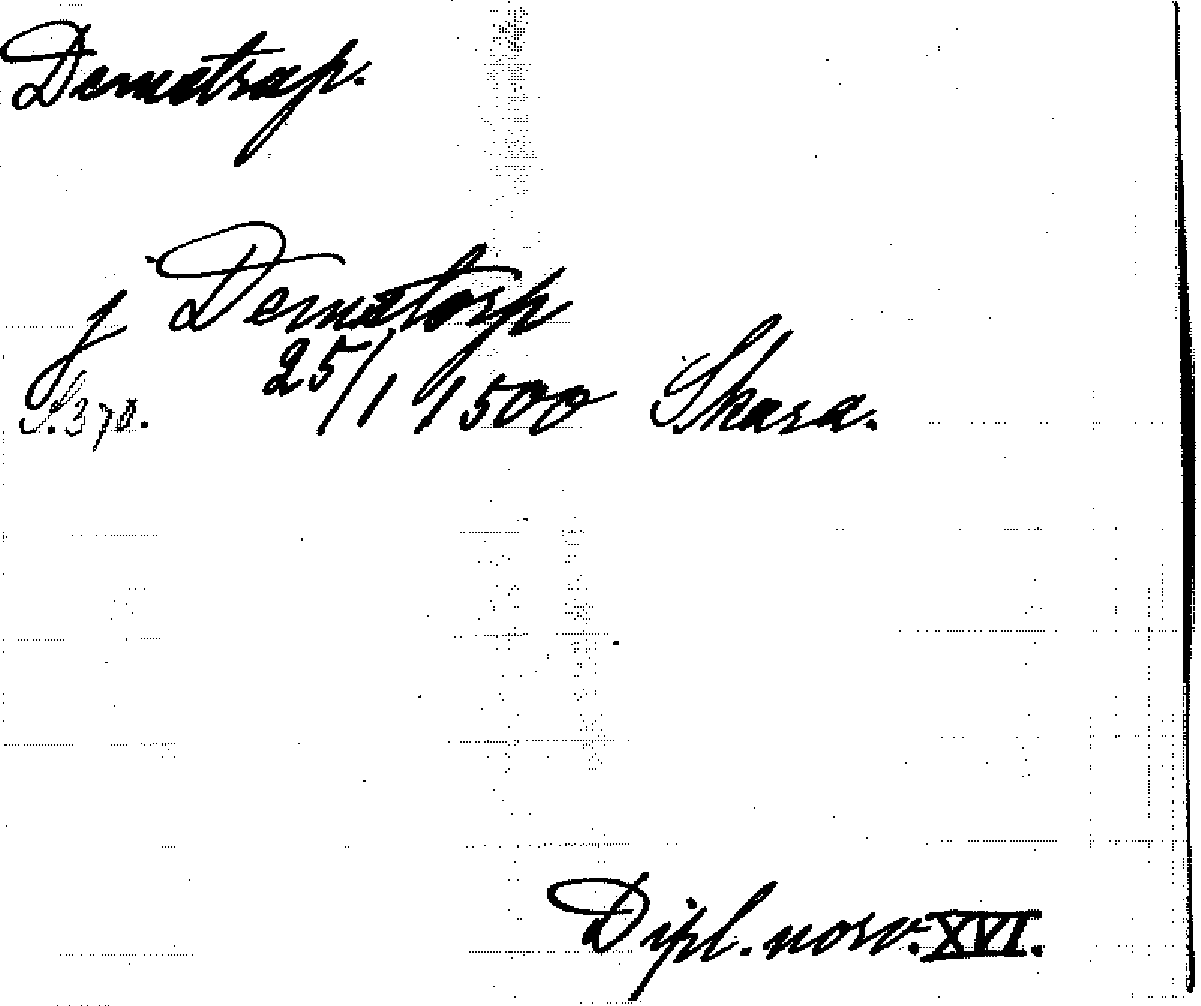 Dematrap.
j Dematorp
S. 370. 25/1 1500 Skara.
Dipl. norv. XVI.